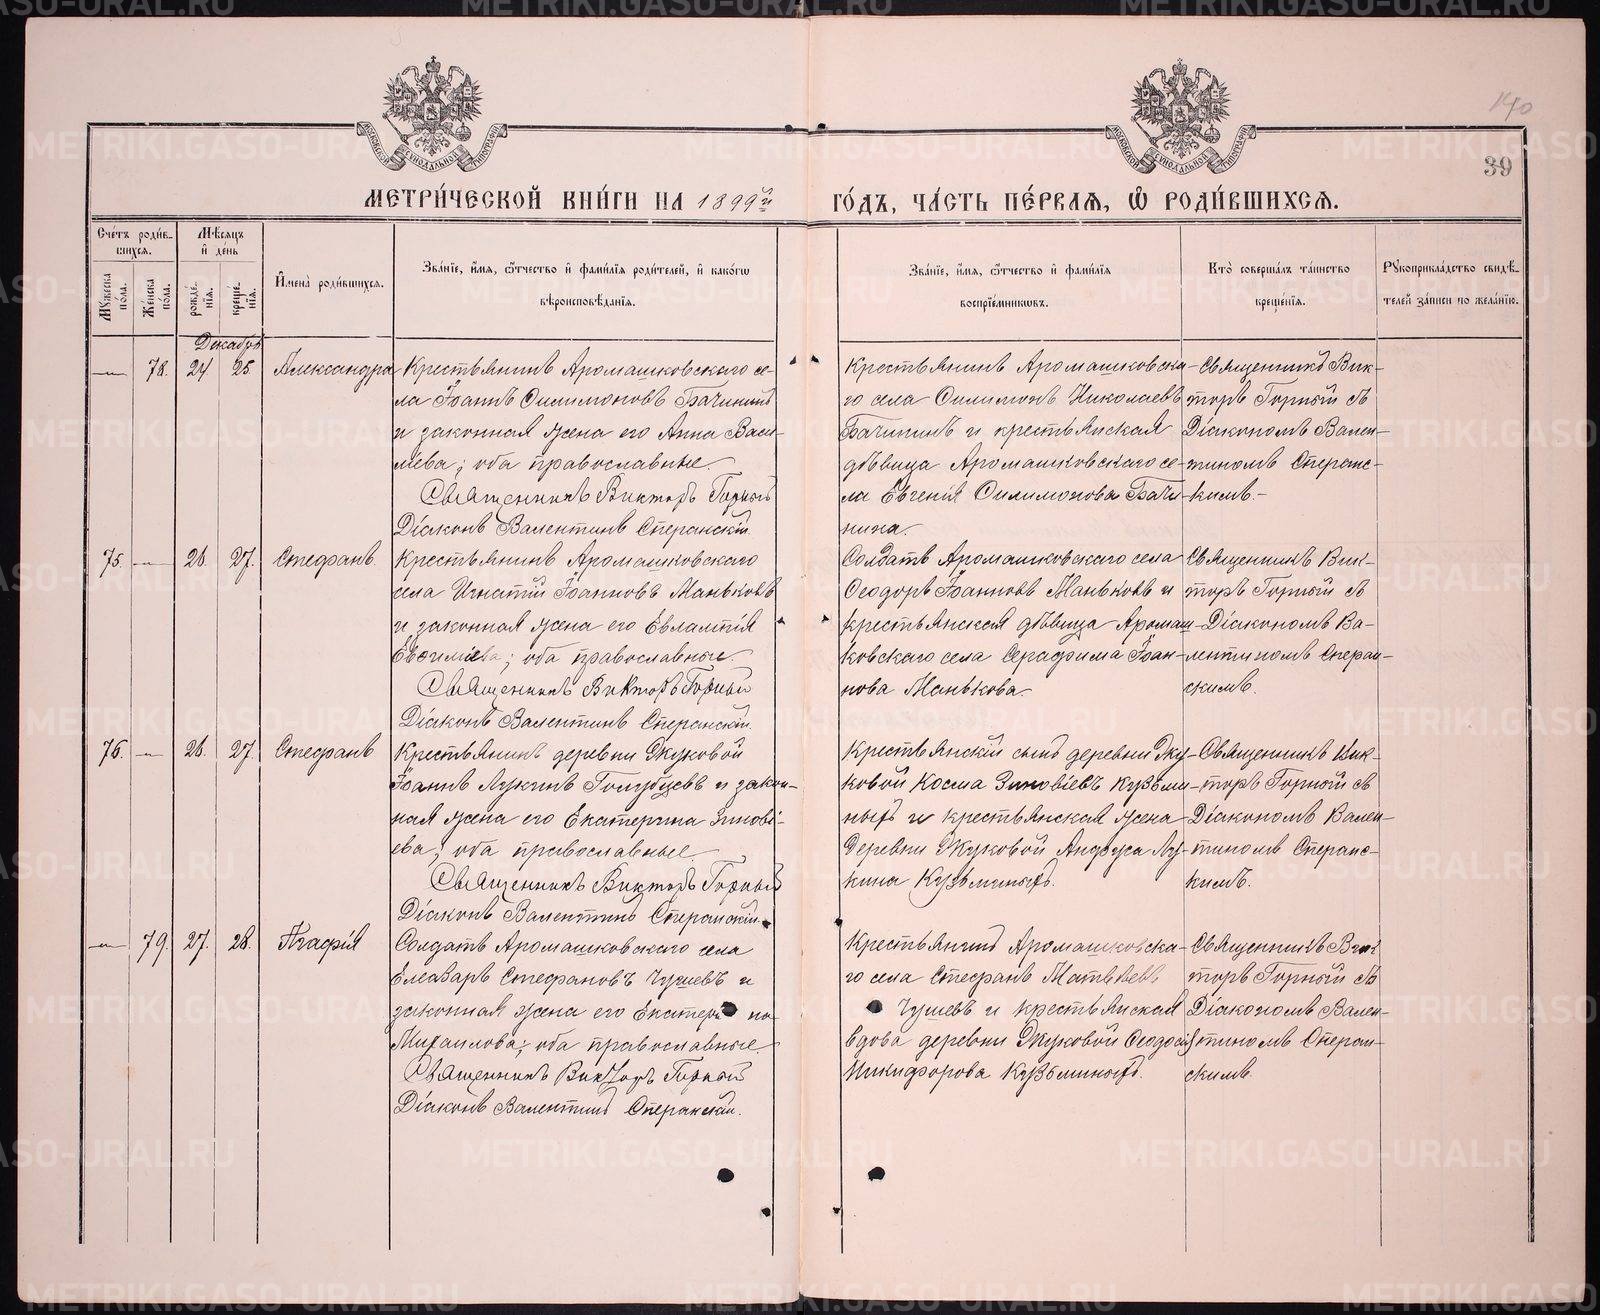 140
39
МЕТРИ́ЧЕСКОЙ КНИ́ГИ НА 1899й
ГО́ДЪ, ЧА́СТЬ ПЕ́РВАЯ, Ѽ РОДИ́ВШИХСЯ.
Счётъ роди́в-
шихся.
Мѣ́сяцъ
и҆ де́нь
Мꙋ́жеска
по́ла.
Же́нска
по́ла.
рожде́-
нїѧ.
креще́-
нїѧ.
И҆мена̀ роди́вшихся.
Зва́нїе, и҆́мя, ѻ҆́тчество и҆ фами́лїя роди́телей, и҆ како́гѡ
вѣроисповѣ́данїя.
Зва́нїе, и҆́мя, ѻ҆́тчество и҆ фами́лїя
воспрїе́мникѡвъ.
Кто̀ соверша́лъ та́инство
креще́нїя.
Рꙋкоприкла́дство свидѣ́-
телей за́писи по жела́нїю.
Декабрь
— 78. 24 25. Александра
Крестьянинъ Аромашковскаго се-
ла Іоаннъ Филимоновъ Бачининъ
и законная жена его Анна Васи-
лиева; оба православные.
Священникъ Викторъ Горный
Діаконъ Валентинъ Сперанскій.
Крестьянинъ Аромашковска-
го села Филимонъ Николаевъ
Бачининъ и крестьянская
дѣвица Аромашковскаго се-
ла Евгенія Филимонова Бачи-
нина.
Священникъ Вик-
торъ Горный съ
Діакономъ Вален-
тиномъ Сперанс-
кимъ.
75. — 26. 27. Стефанъ
Крестьянинъ Аромашковскаго
села Игнатій Іоанновъ Маньковъ
и законная жена его Евлампія
Евфиміева; оба православные.
Священникъ Викторъ Горный
Діаконъ Валентинъ Сперанскій.
Солдатъ Аромашковскаго села
Феодоръ Іоанновъ Маньковъ и
крестьянская дѣвица Аромаш-
ковскаго села Серафима Іоан-
нова Манькова.
Священникъ Вик-
торъ Горный съ
Діакономъ Ва-
лентиномъ Сперан-
скимъ.
76. — 26. 27. Стефанъ
Крестьянинъ деревни Жуковой
Іоаннъ Лукинъ Голубцевъ и закон-
ная жена его Екатерина Зинові-
ева; оба православные.
Священникъ Викторъ Горный
Діаконъ Валентинъ Сперанскій.
Крестьянскій сынъ деревни Жу-
ковой Косма Зиновіевъ Кузьми-
ныхъ и крестьянская жена
деревни Жуковой Анфуса Лу-
кина Кузьминыхъ.
Священникъ Вик-
торъ Горный съ
Діакономъ Вален-
тиномъ Сперанс-
кимъ.
— 79. 27. 28. Агафія
Солдатъ Аромашковскаго села
Елеазаръ Стефановъ Чушевъ и
законная жена его Екатери на
Михаилова; оба православные.
Священникъ Викторъ Горный
Діаконъ Валентинъ Сперанскій.
Крестьянинъ Аромашковска-
го села Стефанъ Матвѣевъ
Чушевъ и крестьянская
вдова деревни Жуковой Феодосія
Никифорова Кузьминыхъ.
Священникъ Вик
торъ Горный съ
Діакономъ Вален-
тиномъ Сперан-
скимъ.